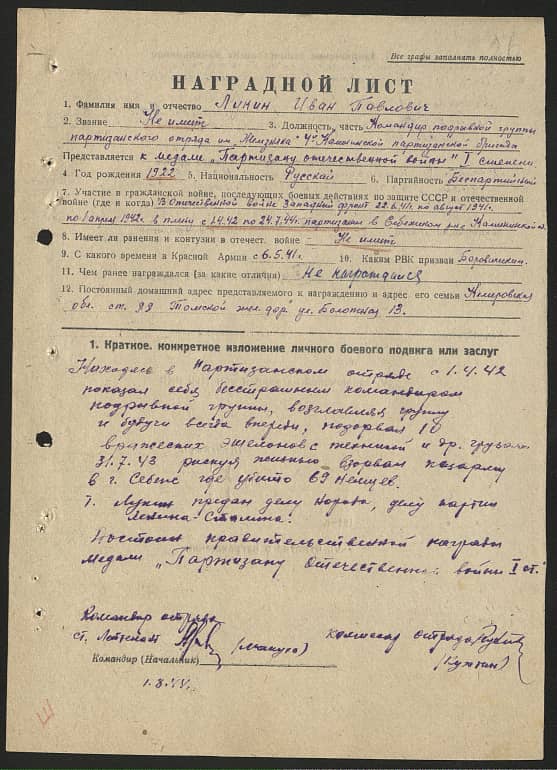 Все графы заполнять полностью
НАГРАДНОЙ ЛИСТ
1. Фамилия имя и отчество Лунин Иван Павлович
2. Звание Не имеет 3. Должность, часть Командир подрывной группы
партизанского отряда им. 4й Калининской партизанской бригады
Представляется к медали „Партизану отечественной войны" I степени.
4 Год рождения 1922 5. Национальность Русский 6. Партийность Беспартийный
7. Участие в гражданской войне, последующих боевых действиях по защите СССР и отечественной
войне (где и когда) В Отечественной войне Западный фронт 22.6.41г. по август 1941г.
по 1 апреля 1942г. в плену с 1.4.42 по 24.7.44г. партизан в Себежском р-не Калининской о.
8. Имеет ли ранения и контузии в отечест. войне Не имеет
9. С какого времени в Красной Армии с 6.5.41г. 10. Каким РВК призван
11. Чем ранее награждался (за какие отличия) Не награждался
12. Постоянный домашний адрес представляемого к награждению и адрес его семьи Кемеровская
обл. ст. Томской жел. дор. ул. Болотная 13.
1. Краткое, конкретное изложение личного боевого подвига или заслуг
Находясь в Партизанском отряде с 1.4.42
показал себя бесстрашным командиром
подрывной группы, возглавляя группу
и будучи всегда впереди, подорвал 10
вражеских эшелонов с техникой и др. грузом
31.7.43 рискуя жизнью взорвал казарму
в г. Себеже где убито 69 немцев.
Т. Лунин предан делу народа, делу партии
Ленина-Сталина.
Достоин правительственной награды
медали „Партизану Отечественной войны I ст."
Командир отряда
ст. Лейтенант комиссар отряда
Командир (Начальник)
1.8.44.